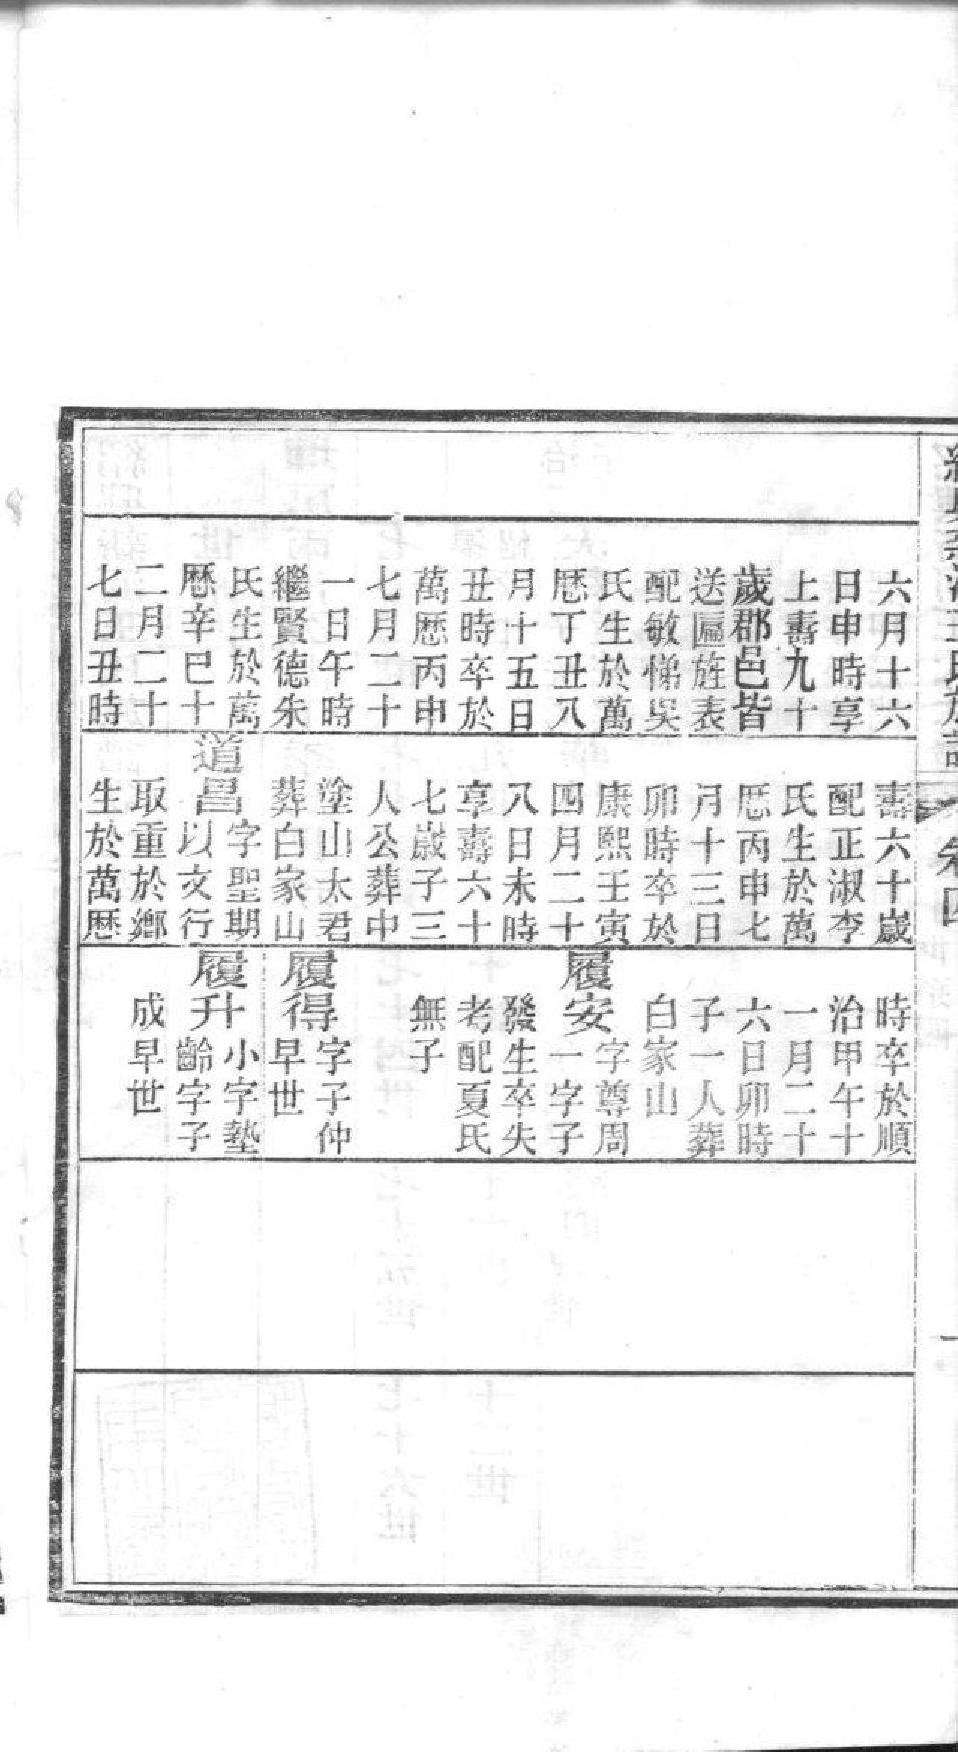 六月十六
日申時享
上壽九十
歲郡邑皆
送匾旌表
配敏悌吳
氏生於萬
厯丁丑八
月十五日
丑時卒於
萬厯丙申
七月二十
一日午時
繼賢德朱
氏生於萬
厯辛巳十
二月二十
七日丑時
壽六十歲
配正淑李
氏生於萬
厯丙申七
月十三日
卯時卒於
康熙壬寅
四月二十
八日未時
享壽六十
七歲子三
人公葬中
塗山太君
葬白家山
道昌字聖期
以文行
取重於鄉
生於萬厯
時卒於順
治甲午十
一月二十
六日卯時
子一人葬
白家山
履安字尊周
一字子
發生卒失
考配夏氏
無子
履得字子仲
早世
履升小字塾
齡字子
成早世
卷四